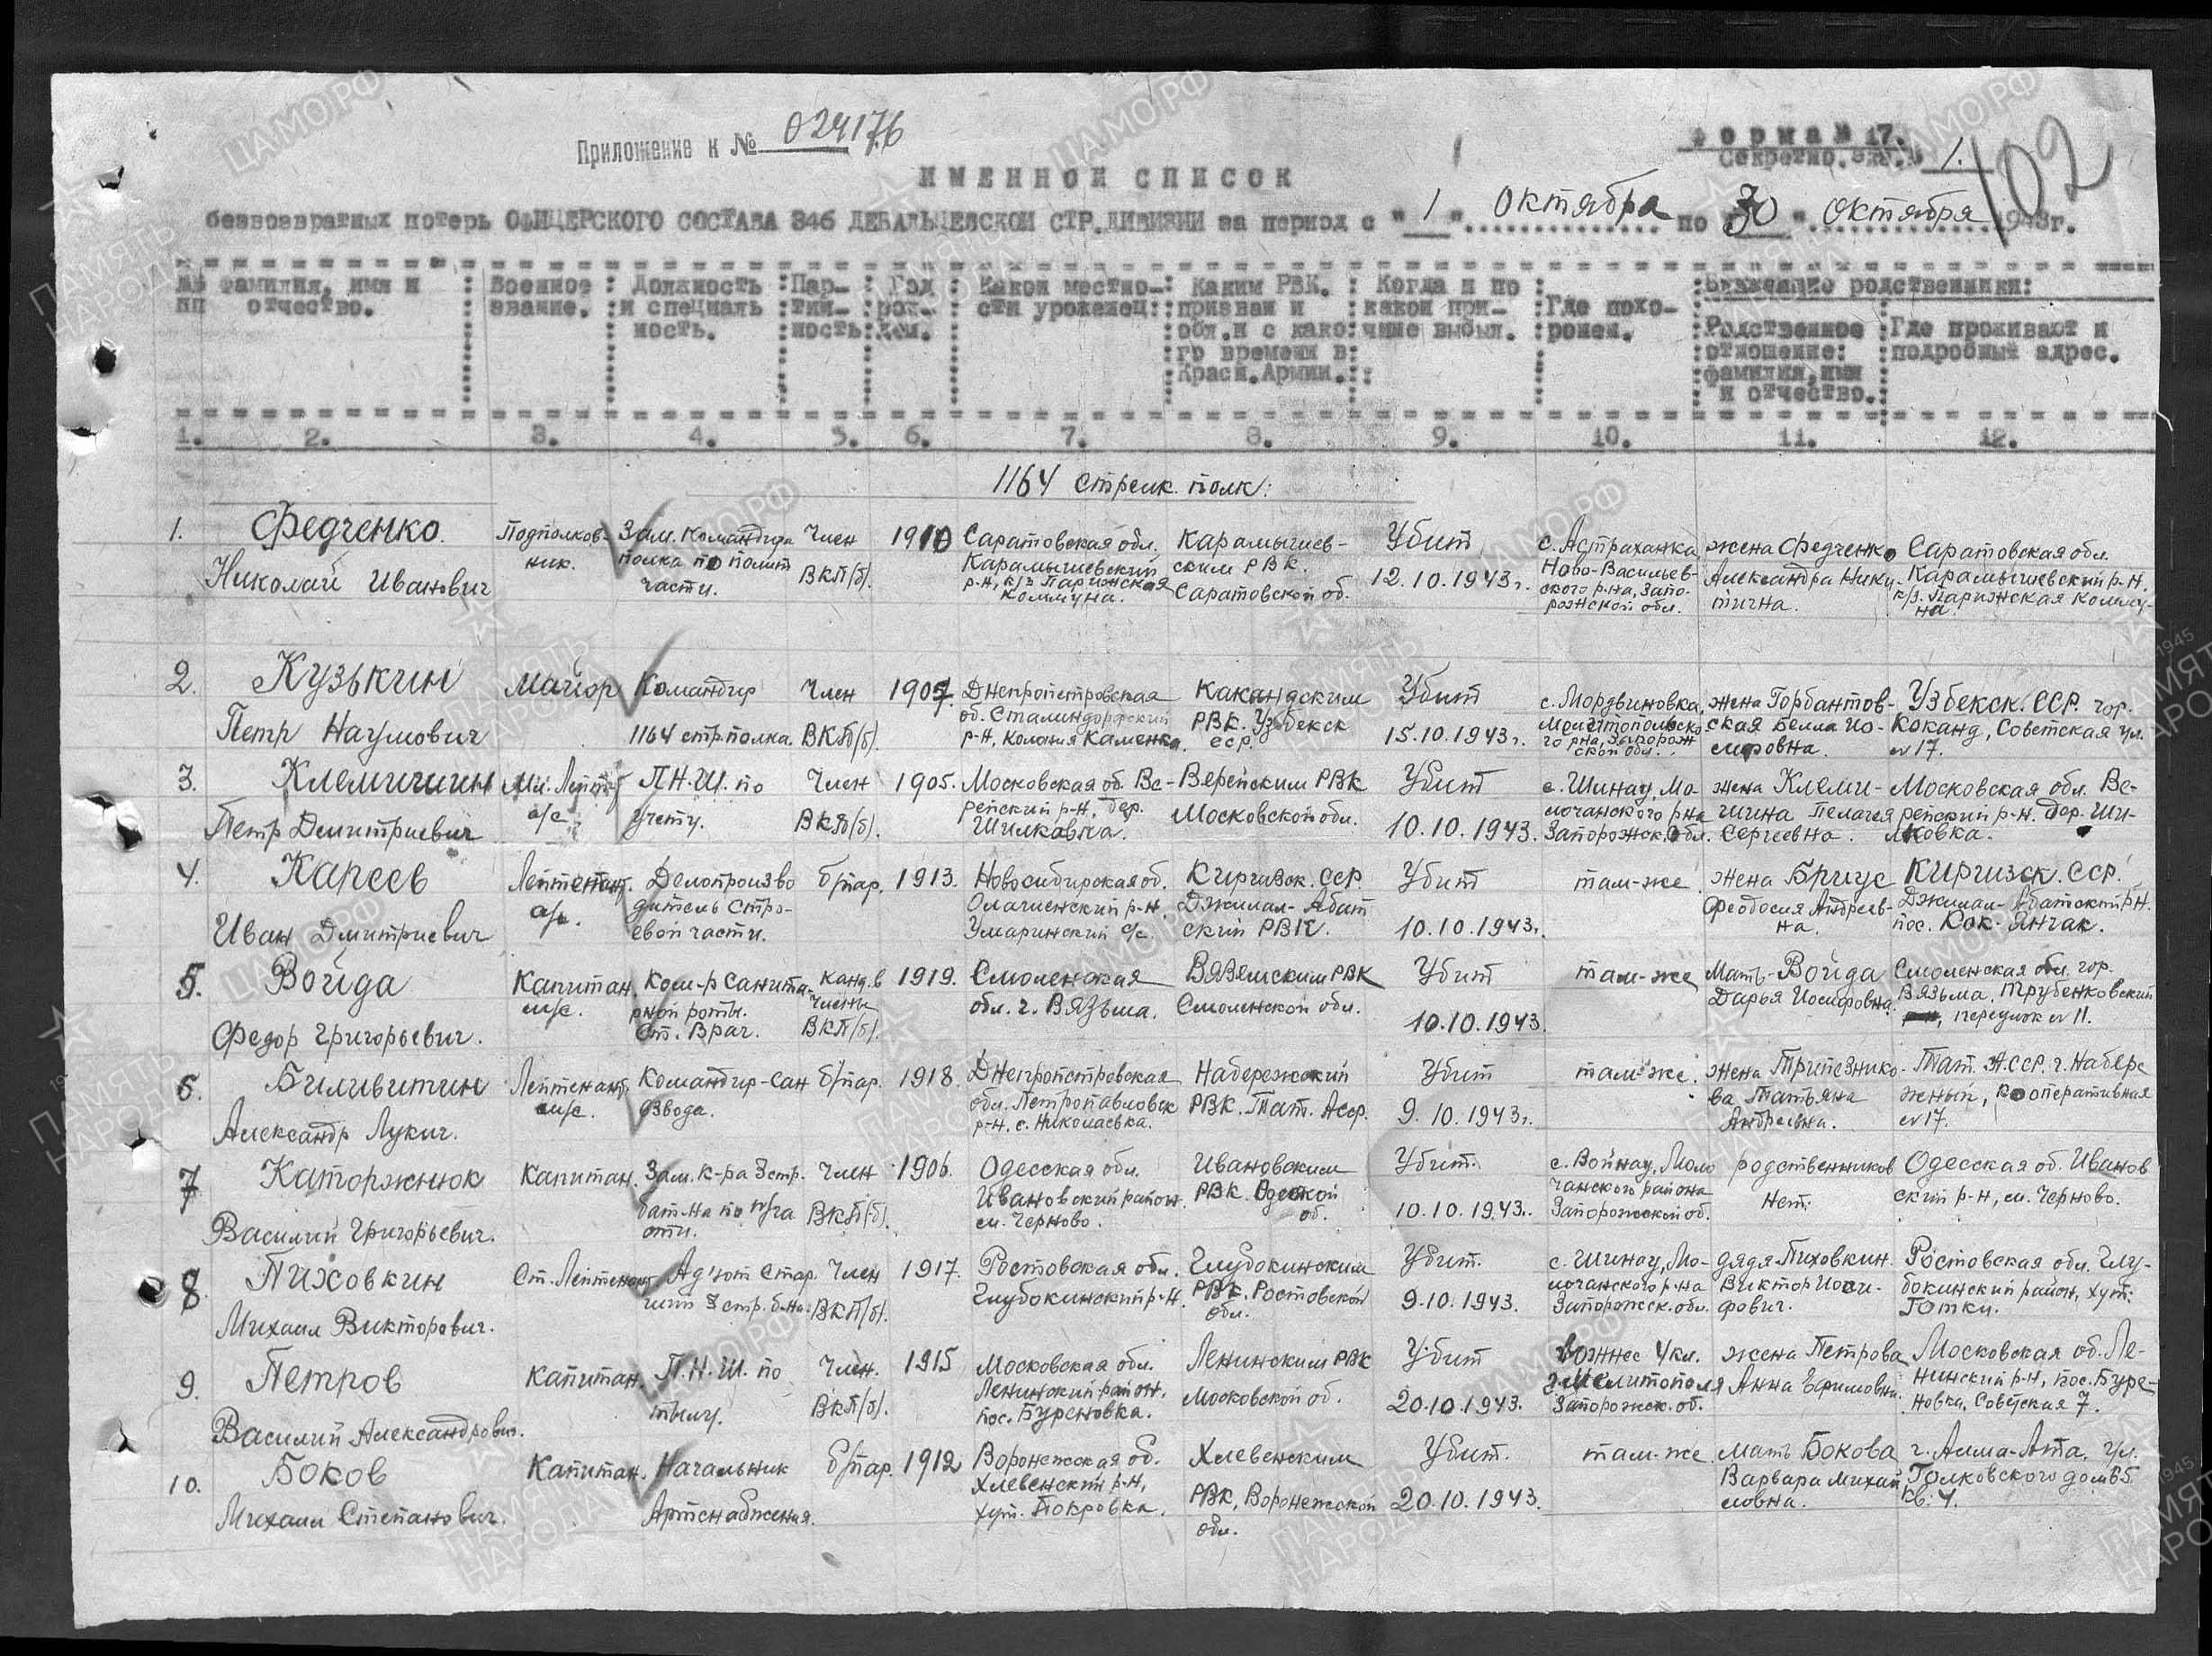 Приложение к № 024176
Форма № 17.
Секретно. экз. № 1.
102
ИМЕННОЙ СПИСОК
безвозвратных потерь ОФИЦЕРСКОГО СОСТАВА 346 ДЕБАЛЬЦЕВСКОЙ СТР.ДИВИЗИИ за период с "1" октября по "30" октября 1943г.
№№ пп
Фамилия, имя и отчество.
Военное звание.
Должность и специальность.
Партийность.
Год рожден.
Какой местности уроженец:
Каким РВК. призван и обл.и с какого времени в Красн.Армии.
Когда и по какой причине выбыл.
Где похоронен.
Ближайшие родственники:
Родственное отношение: фамилия,имя и отчество.
Где проживают и подробный адрес.
1. 2. 3. 4. 5. 6. 7. 8. 9. 10. 11. 12.
1164 стрелк. полк:
1. Федченко Николай Иванович
Подполковник.
Зам. командира полка по полит части.
Член ВКП(б).
1910
Саратовская обл. Карамышевский р-н, к/з Парижская коммуна.
Карамышевским РВК. Саратовской об.
Убит 12.10.1943г.
с. Астраханка Ново-Васильевского р-на, Запорожской обл.
жена Федченко Александра Никитична.
Саратовская обл. Карамышевский р-н. к/з. Парижская коммуна.
2. Кузькин Петр Наумович
Майор
Командир 1164 стр.полка.
Член ВКП(б).
1907.
Днепропетровская об. Сталиндорфский р-н, колония Каменка.
Какандским РВК. Узбекск ССР.
Убит 15.10.1943г.
с. Мордвиновка, Мелитопольского р-на, Запорожской обл.
жена Горбантовская Белла Иосифовна.
Узбекск. ССР. гор. Коканд, Советская ул. №17.
3. Клемишин Петр Дмитриевич
Мл. Лейт-т а/с.
П.Н.Ш. по учету.
Член ВКП(б).
1905.
Московская об. Верейский р-н. дер. Шилковка.
Верейским РВК Московской обл.
Убит 10.10.1943.
с. Шинау, Молочанского р-на Запорожск. обл.
жена Клемишина Пелагея Сергеевна.
Московская обл. Верейский р-н. дер. Шилковка.
4. Кареев Иван Дмитриевич
Лейтенант. а/с.
Делопроизводитель строевой части.
б/пар.
1913.
Новосибирская об. р-н, Умаринский с/с.
Киргизск. ССР. Джилал-Абатский РВК.
Убит 10.10.1943г.
там-же
жена Бриус Феодосия Андреевна.
Киргизск. ССР. Джилал-Абатский р-н. пос. Кок-Янчак.
5. Войда Федор Григорьевич.
Капитан. м/с.
Ком-р санитарной роты. Ст. Врач.
канд. в члены ВКП(б).
1919.
Смоленская обл. г. Вязьма.
Вяземским РВК Смоленской обл.
Убит 10.10.1943.
там-же
Мать-Войда Дарья Иосифовна.
Смоленская обл. гор. Вязьма, Трубенковский переулок № 11.
6. Биливитин Александр Лукич.
Лейтенант. м/с.
Командир-сан взвода.
б/пар.
1918.
Днепропетровская обл. Петропавловск р-н. с. Николаевка.
Набережский РВК. Тат. Асср.
Убит 9.10.1943г.
там-же.
жена Трипезникова Татьяна Андреевна.
Тат. АССР. г. Набережный, Кооперативная №17.
7 Каторжнюк Василий Григорьевич.
Капитан.
Зам. к-ра 3 стр. бат-на по п/части.
Член ВКП(б).
1906.
Одесская обл. Ивановский район. им. Черново.
Ивановским РВК. Одесской об.
Убит. 10.10.1943.
с. Войнау, Молочанского района Запорожской об.
родственников нет.
Одесская об. Ивановский р-н, им. Черново.
8. Пиховкин Михаил Викторович.
Ст. Лейтенант
Ад'ют старший 3 стр. б-на.
Член ВКП(б).
1917.
Ростовская обл. Глубокинский р-н.
Глубокинским РВК. Ростовской обл.
Убит. 9.10.1943.
с. Шинау, Молочанского р-на Запорожск. обл.
дядя-Пиховкин Виктор Иосифович.
Ростовская обл. Глубокинский район, хут.
9. Петров Василий Александрович.
Капитан.
П.Н.Ш. по тылу.
Член. ВКП(б).
1915
Московская обл. Ленинский район, пос. Буреновка.
Ленинским РВК Московской об.
Убит 20.10.1943.
4 км. Мелитополя Запорожск. об.
жена Петрова Анна Ефимовна.
Московская об. Ленинский р-н, пос. Буреновка, Советская 7.
10. Боков Михаил Степанович.
Капитан.
Начальник Артснабжения.
б/пар.
1912
Воронежская об. Хлевенский р-н, хут. Покровка.
Хлевенским РВК, Воронежской обл.
Убит. 20.10.1943.
там-же
мать Бокова Варвара Михайловна.
г. Алма-Ата, ул. кв. 4.
ПАМЯТЬ НАРОДА
ЦАМО.РФ